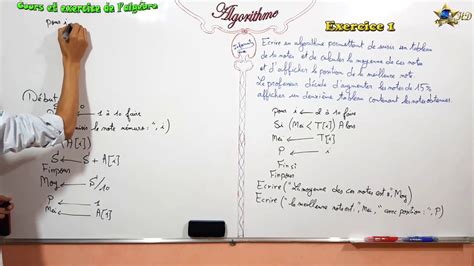 Cours et exercice de l'algèbre
pour i
Algorithme
Exercice 1
Ecrire un algorithme permettant de saisir un tableau
de 10 notes et de calculer la moyenne de ces notes
et d'afficher la position de la meilleure note.
Le professeur décide d'augmenter les notes de 15%
afficher un deuxième tableau contenant les notes obtenues.
(Début
à 10 faire
note numéro: ", i)
A[i]
S ← S + A[i]
Finpour
Moy ← S/10
P ← 1
Mei ← A[1]
pour i ← 2 à 10 faire
Si (Mei < T[i]) Alors
Mei ← T[i]
P ← i
Finsi
Finpour
Ecrire("La moyenne des ces notes est", Moy)
Ecrire("la meilleure note est:", Mei, "avec position:", P)